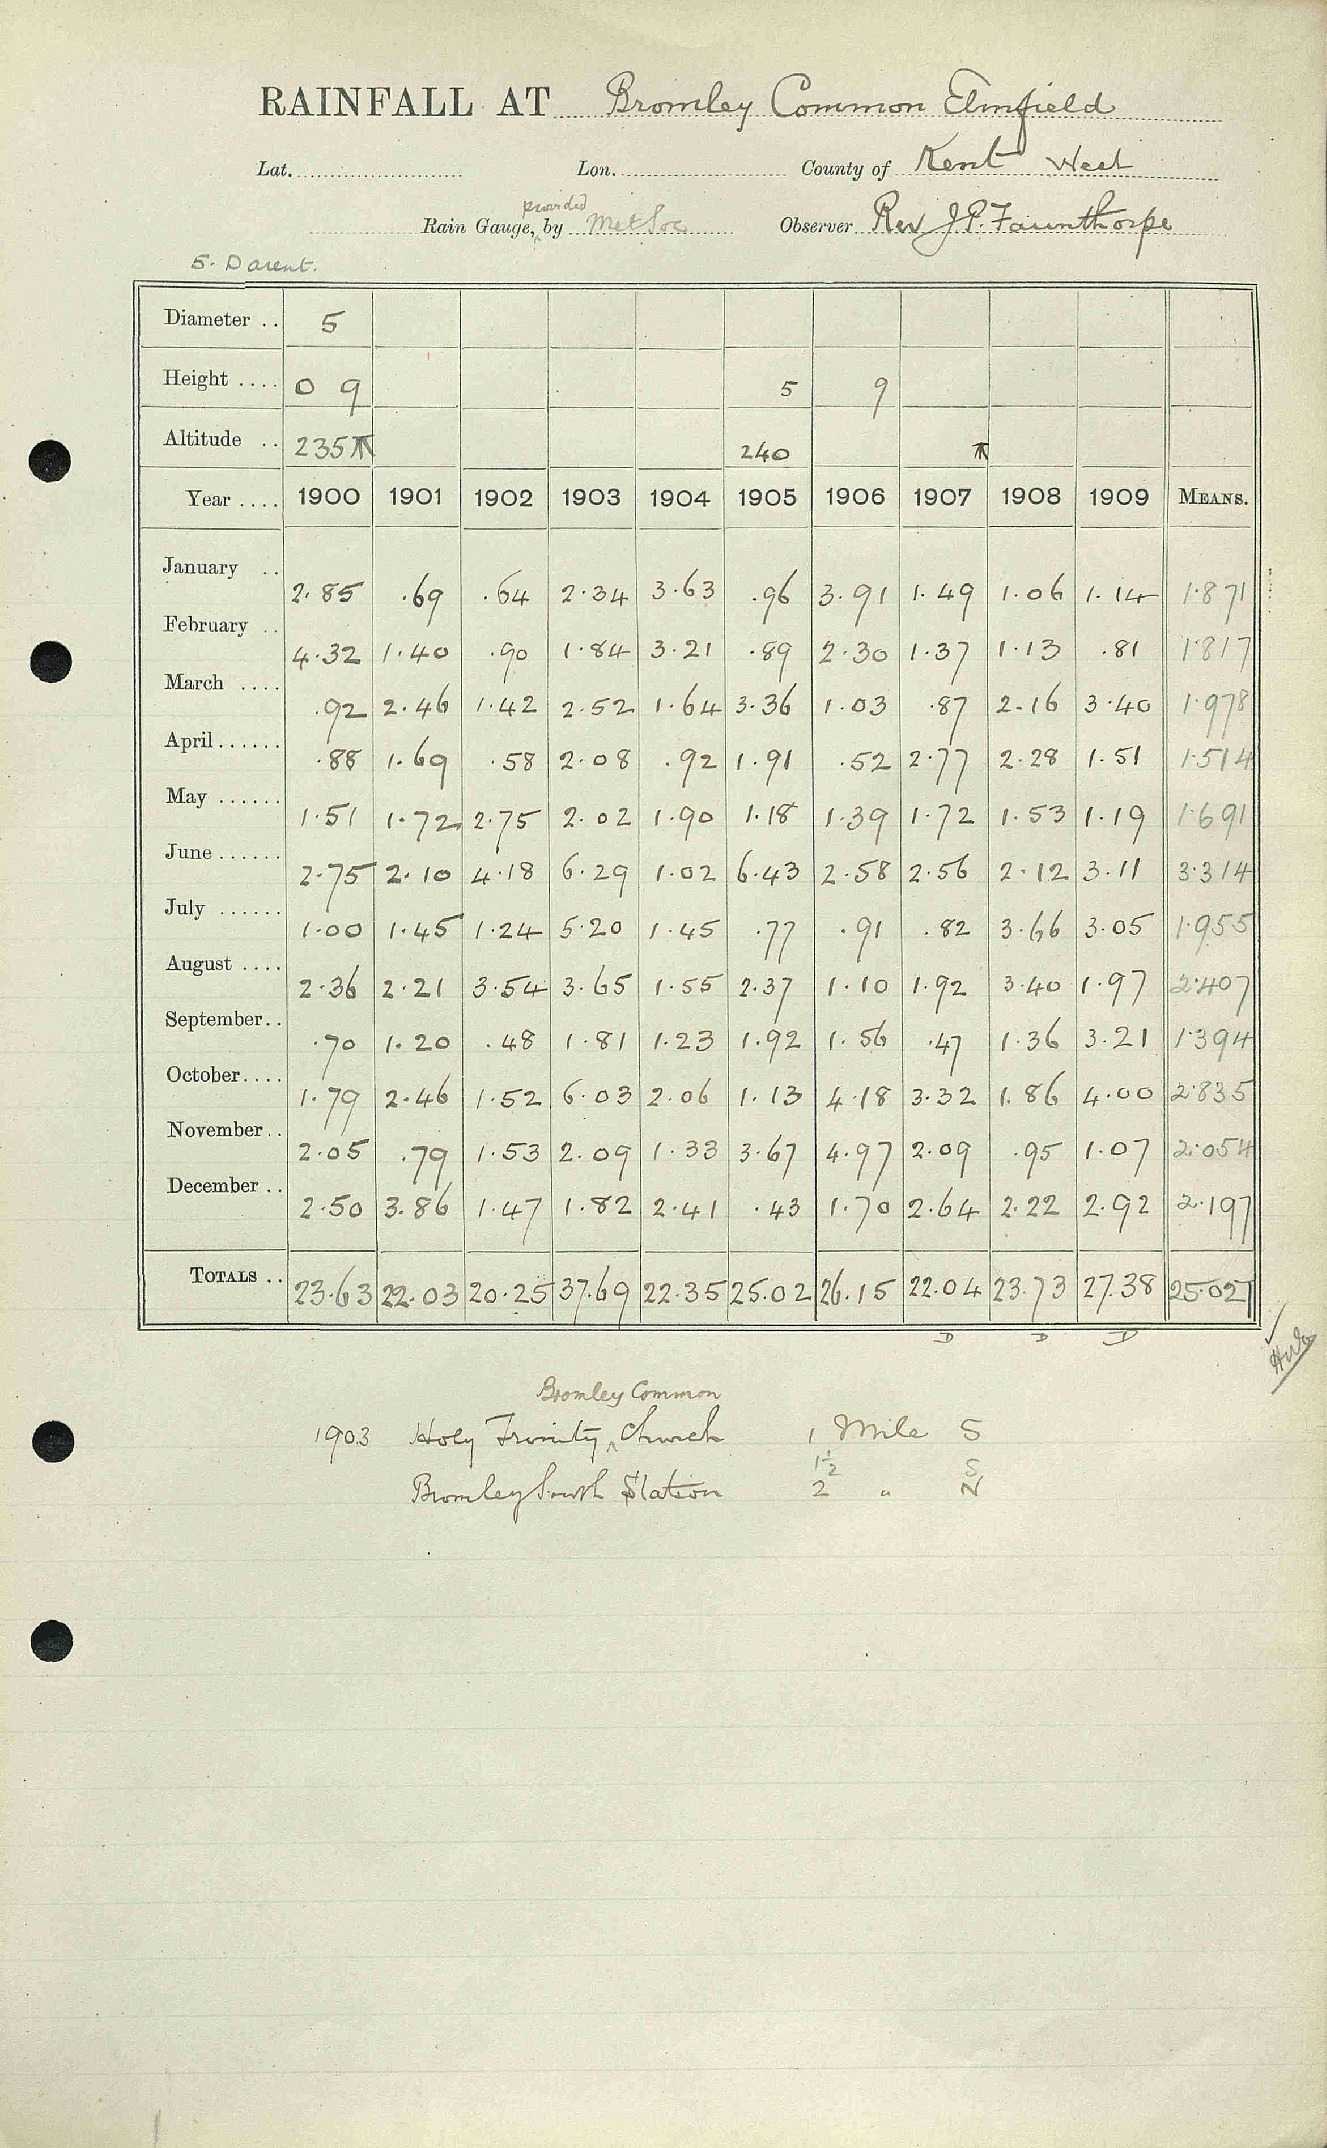 RAINFALL AT Bromley Common Elmfield
Lat. Lon. County of Kent West
provided
Rain Gauge, by Met Soc Observer Rev J.P. Faunthorpe
5. Darent.
Diameter .. 5
Height .... 0 9 5 9
Altitude .. 235 240
Year .... 1900 1901 1902 1903 1904 1905 1906 1907 1908 1909 MEANS.
January .. 2.85 .69 .64 2.34 3.63 .96 3.91 1.49 1.06 1.14 1.871
February .. 4.32 1.40 .90 1.84 3.21 .89 2.30 1.37 1.13 .81 1.817
March .... .92 2.46 1.42 2.52 1.64 3.36 1.03 .87 2.16 3.40 1.978
April...... .88 1.69 .58 2.08 .92 1.91 .52 2.77 2.28 1.51 1.514
May ...... 1.51 1.72 2.75 2.02 1.90 1.18 1.39 1.72 1.53 1.19 1.691
June...... 2.75 2.10 4.18 6.29 1.02 6.43 2.58 2.56 2.12 3.11 3.314
July ...... 1.00 1.45 1.24 5.20 1.45 .77 .91 .82 3.66 3.05 1.955
August .... 2.36 2.21 3.54 3.65 1.55 2.37 1.10 1.92 3.40 1.97 2.407
September.. .70 1.20 .48 1.81 1.23 1.92 1.56 .47 1.36 3.21 1.394
October.... 1.79 2.46 1.52 6.03 2.06 1.13 4.18 3.32 1.86 4.00 2.835
November.. 2.05 .79 1.53 2.09 1.33 3.67 4.97 2.09 .95 1.07 2.054
December .. 2.50 3.86 1.47 1.82 2.41 .43 1.70 2.64 2.22 2.92 2.197
TOTALS .. 23.63 22.03 20.25 37.69 22.35 25.02 26.15 22.04 23.73 27.38 25.027
D D D
Bromley Common
1903 Holy Trinity, Church 1 Mile S
1½ S
Bromley South Station 2 " N